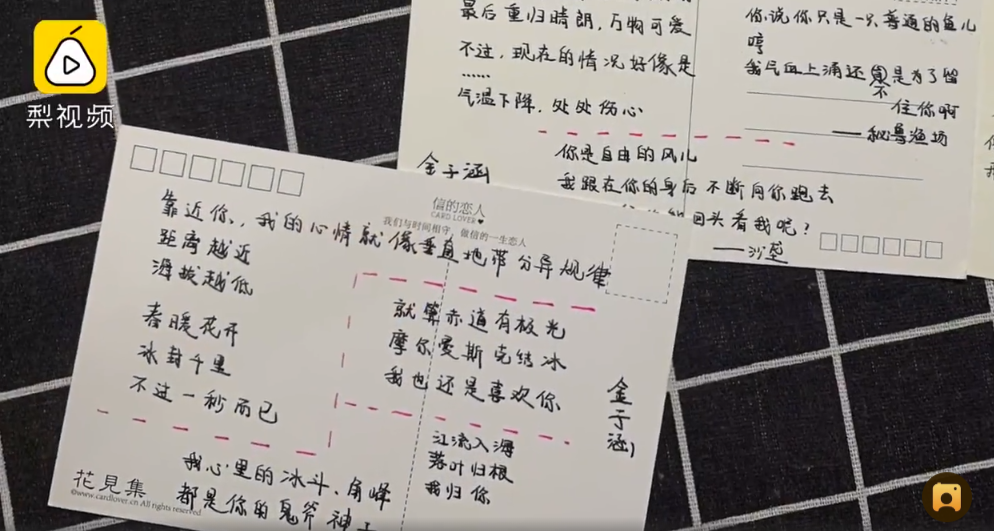 梨视频
最后重归晴朗，万物可爱
不过，现在的情况好像是
……
气温下降，处处伤心
你说你只是一只普通的鱼儿
哼
我气血上涌还不是为了留
住你啊
——秘鲁渔场
你是自由的风儿
我跟在你的身后不断向你跑去
回头看我呢？
——沙垄
金子涵
信的恋人
CARD LOVER
我们与时间相守，做信的一生恋人
靠近你，我的心情就像垂直地带分异规律
距离越近
海拔越低
春暖花开
冰封千里
不过一秒而已
就算赤道有极光
摩尔曼斯克结冰
我也还是喜欢你
金子涵
江流入海
落叶归根
我归你
我心里的冰斗、角峰
都是你的鬼斧神工
花見集
©www.cardlover.cn All rights reserved